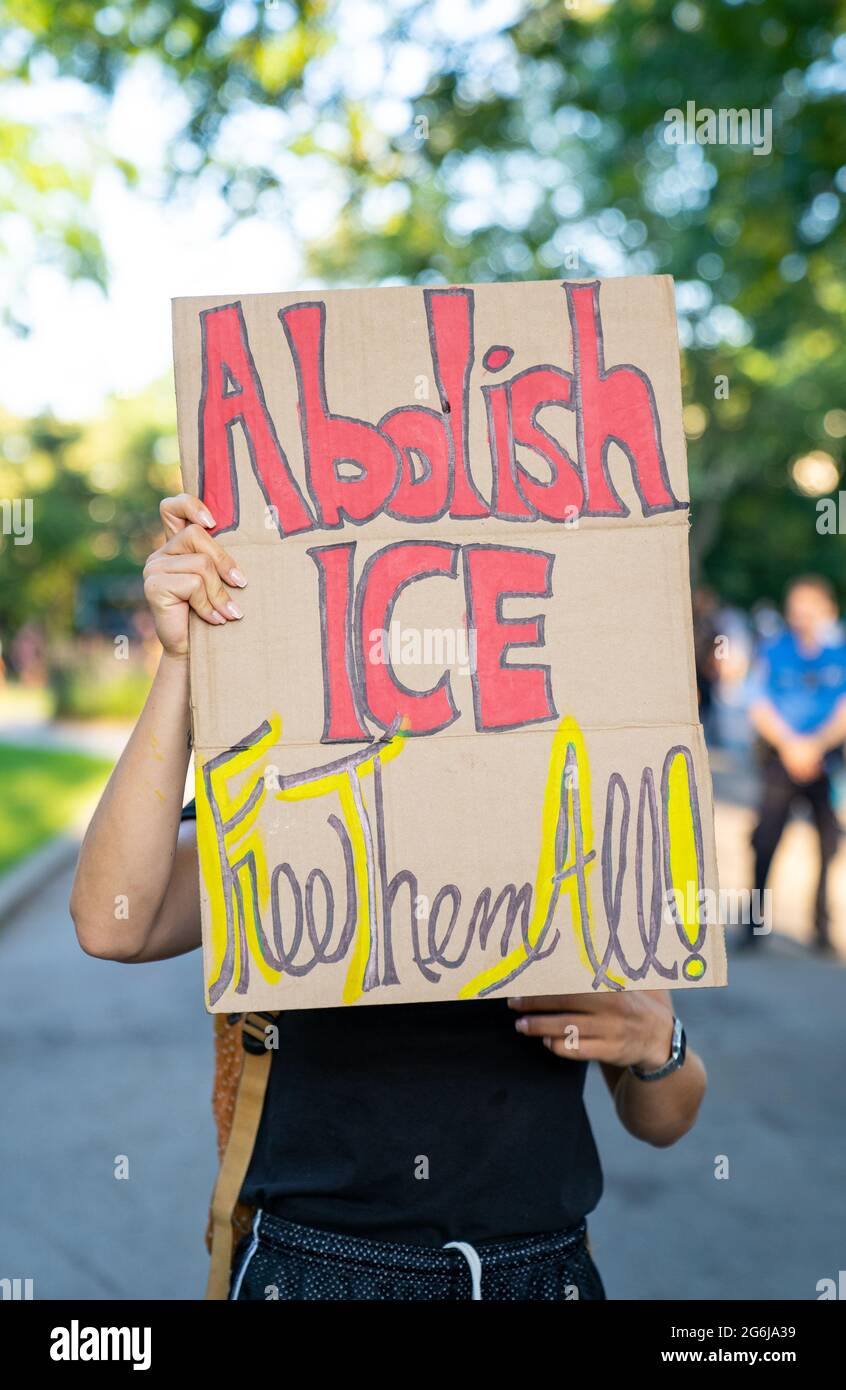 Abolish
ICE
Free Them All!
alamy
Image ID: 2G6JA39
www.alamy.com